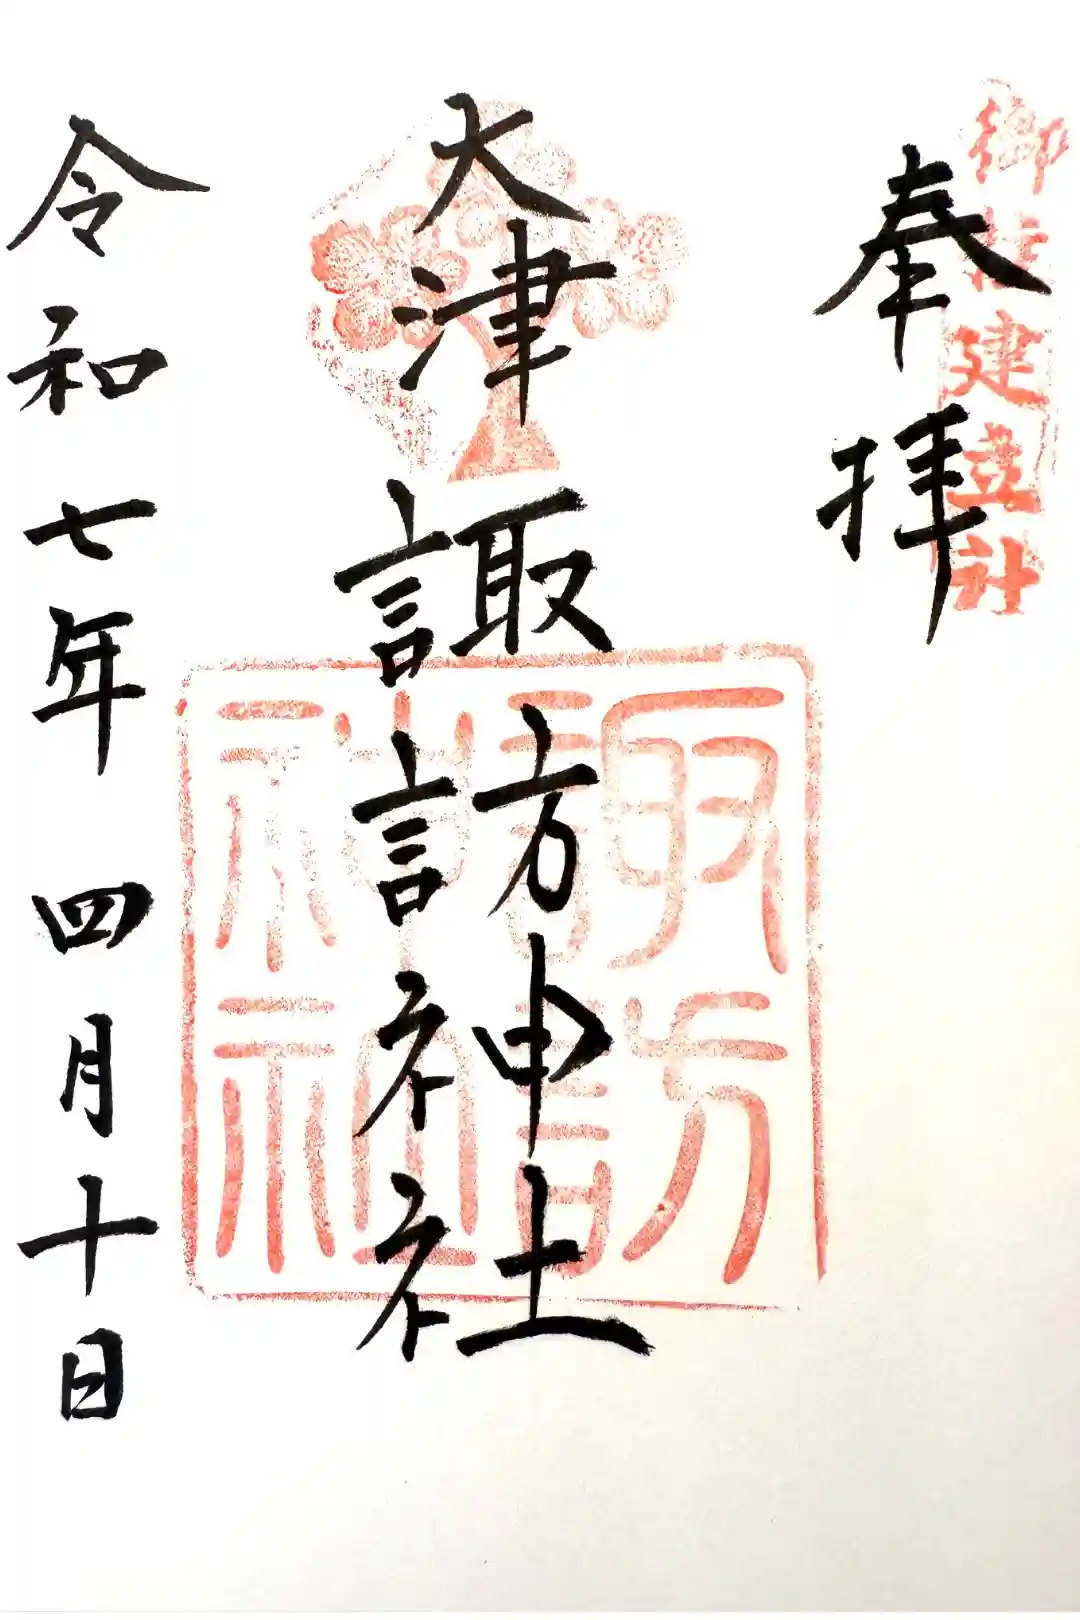 御柱建立社
奉拝
大津諏訪神社
諏訪
神社
令和七年四月十日